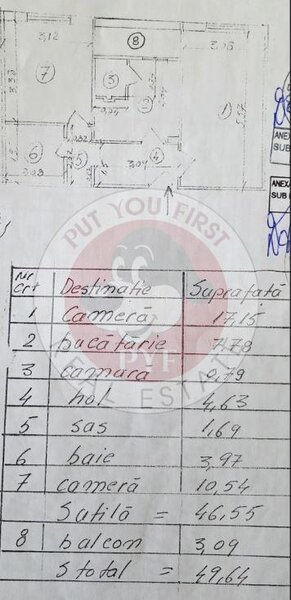 8
3,12
3,16
7
3
2
1
6
5
4
3,04
ANEX
SUB
ANEXA
SUB
PUT YOU FIRST
PYF
REAL ESTATE
Nr. crt Destinație Suprafață
1 Cameră 17,15
2 bucătărie 7,78
3 camară 0,79
4 hol 4,63
5 sas 1,69
6 baie 3,97
7 cameră 10,54
Sutilă = 46,55
8 balcon 3,09
Stotal = 49,64